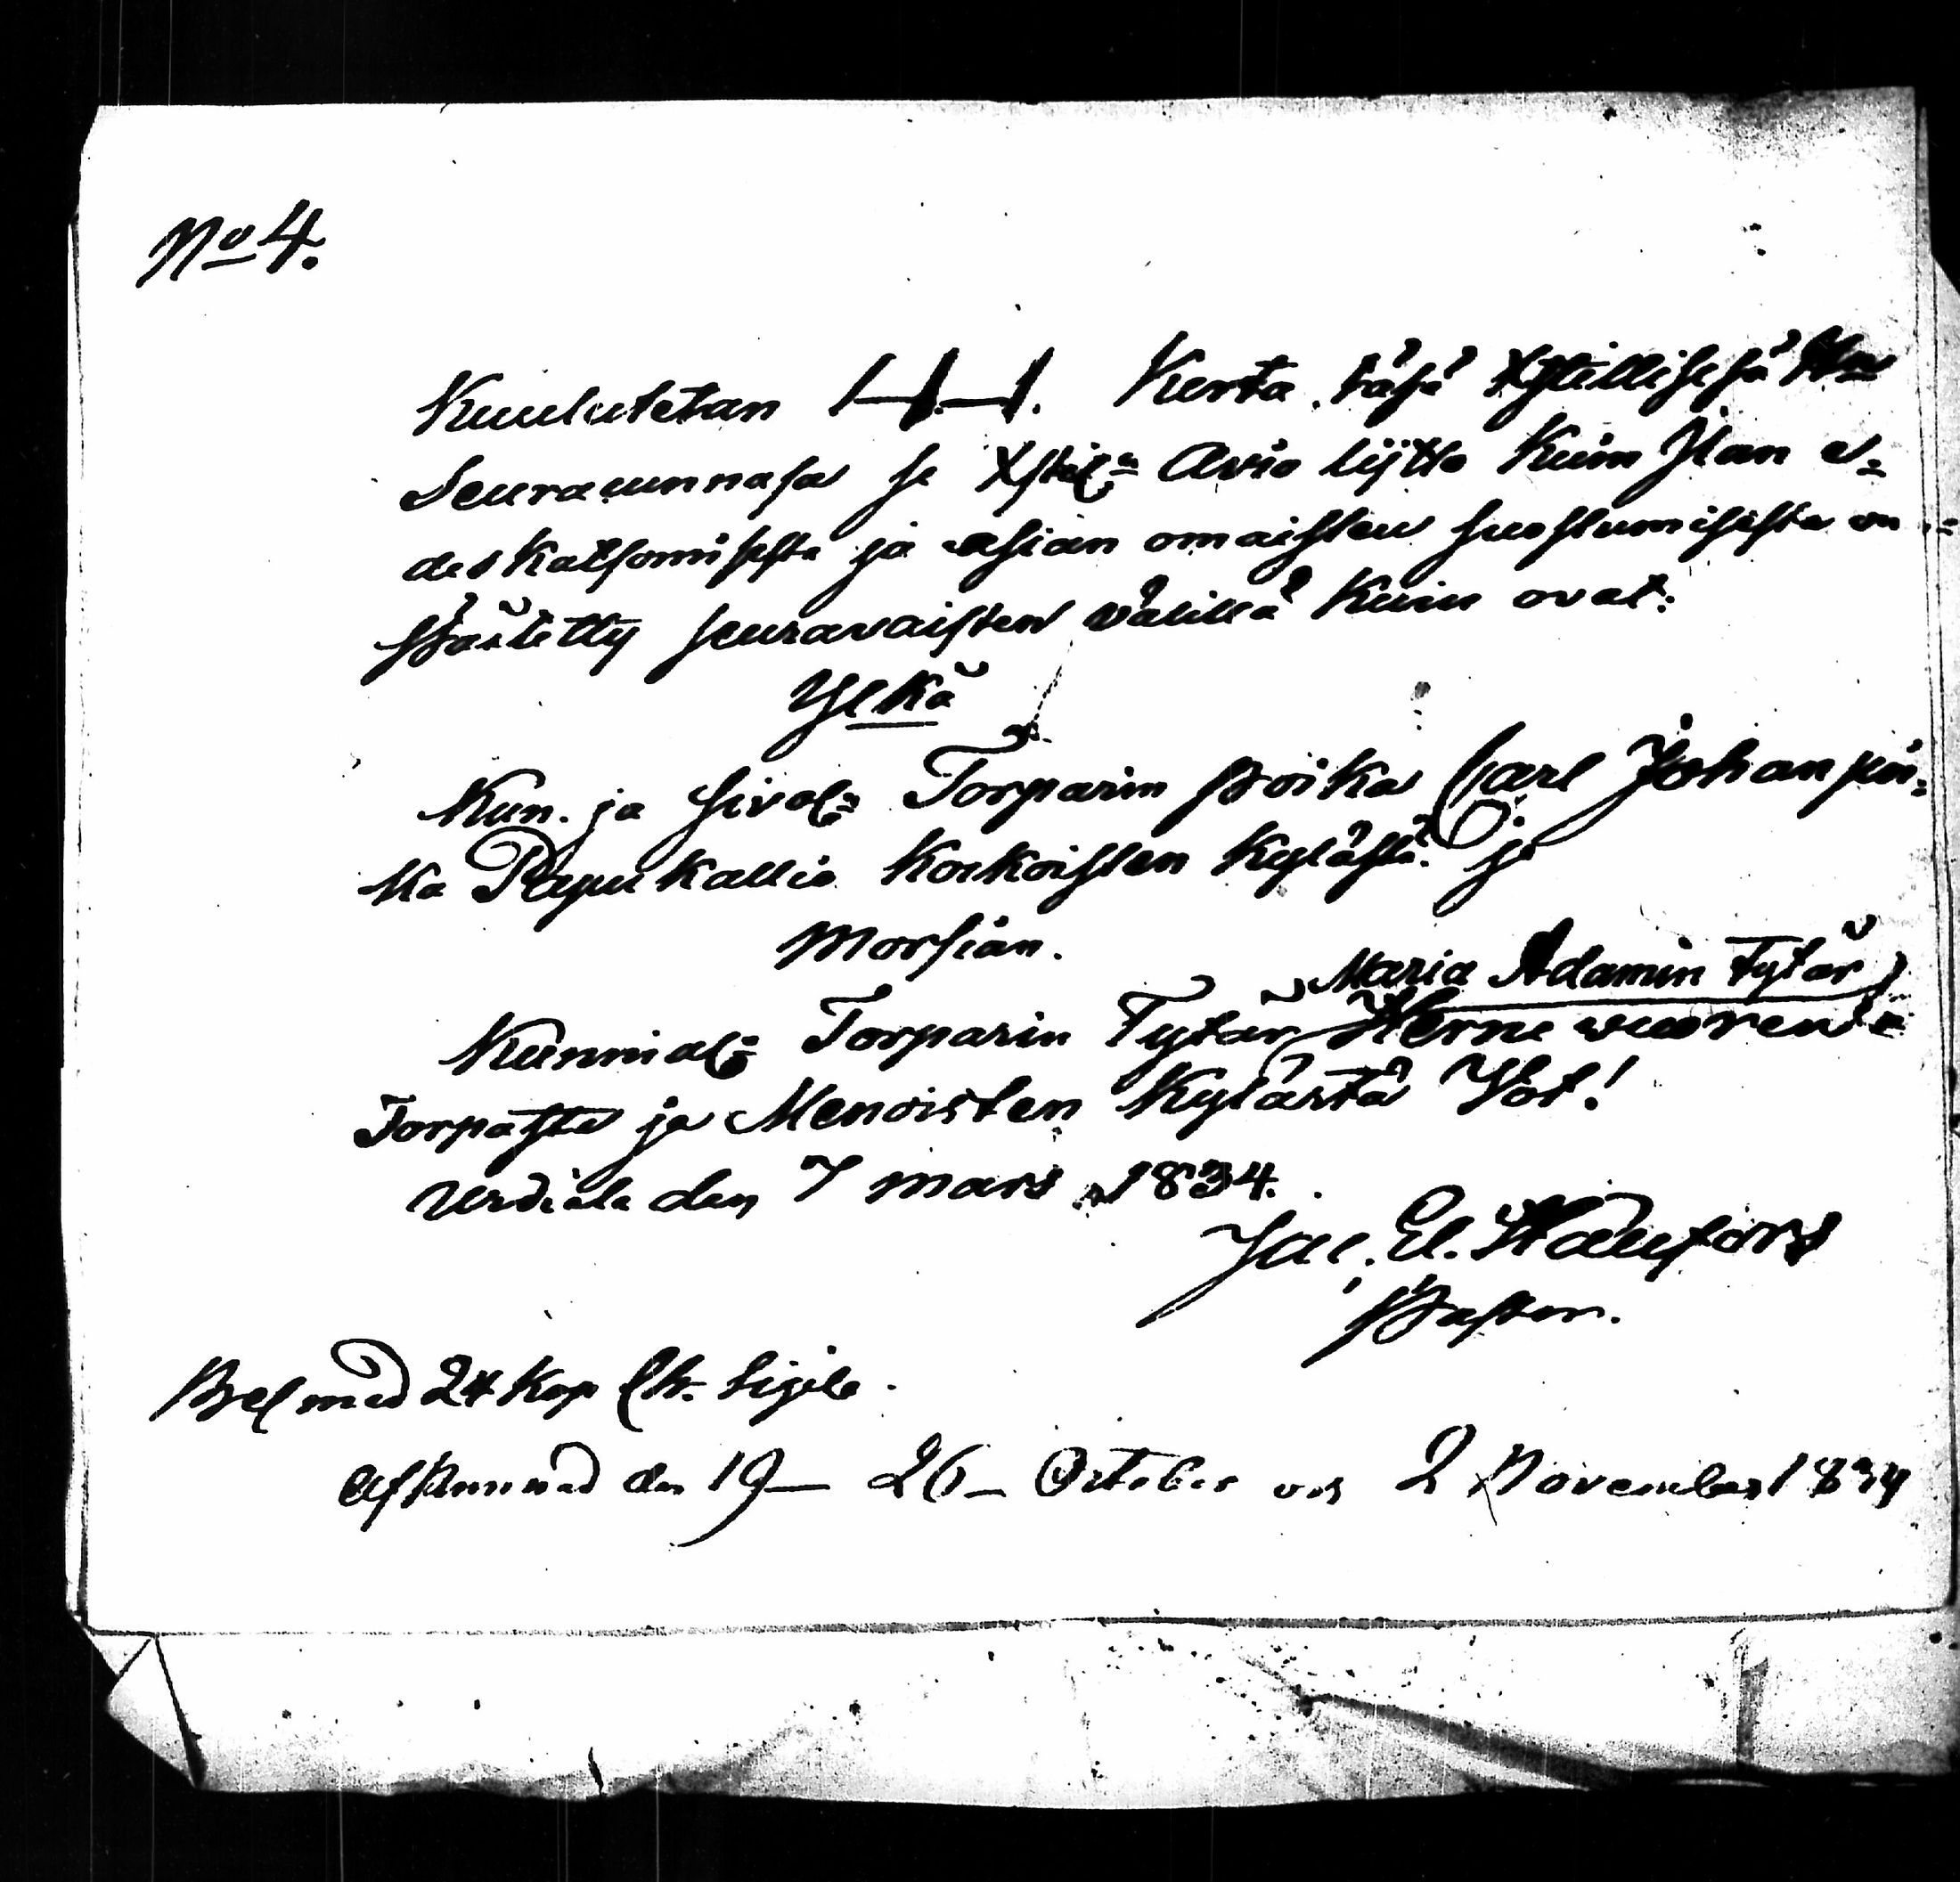 No 4.
Kuulutetan 1. 1. 1. Kerta täsä Xstillisesä
Seuracunnasa se Xstil: Avio lijtto kuin Ilan e-
des katsomisesta ja asian omaisten suostumisesta on
päätetty seuravaisten välillä kuin ovat:
Ylkä
Kun. ja sivol: Torparin poika Carl Johan poi-
ka Papukallio Koskoisten kylästä. ja
Morsian.
Maria Adamin tytär
Kunnial: Torparin Tytär Hernevuoren
Torpasta ja Menoisten Kylästä Yöt!
Urdiala den 7 mars 1834.
Jac. El.
Pastor.
Bel med 24 kop Ch. Sigil.
Afkunnad den 19 – 26 – October och 2 November 1834